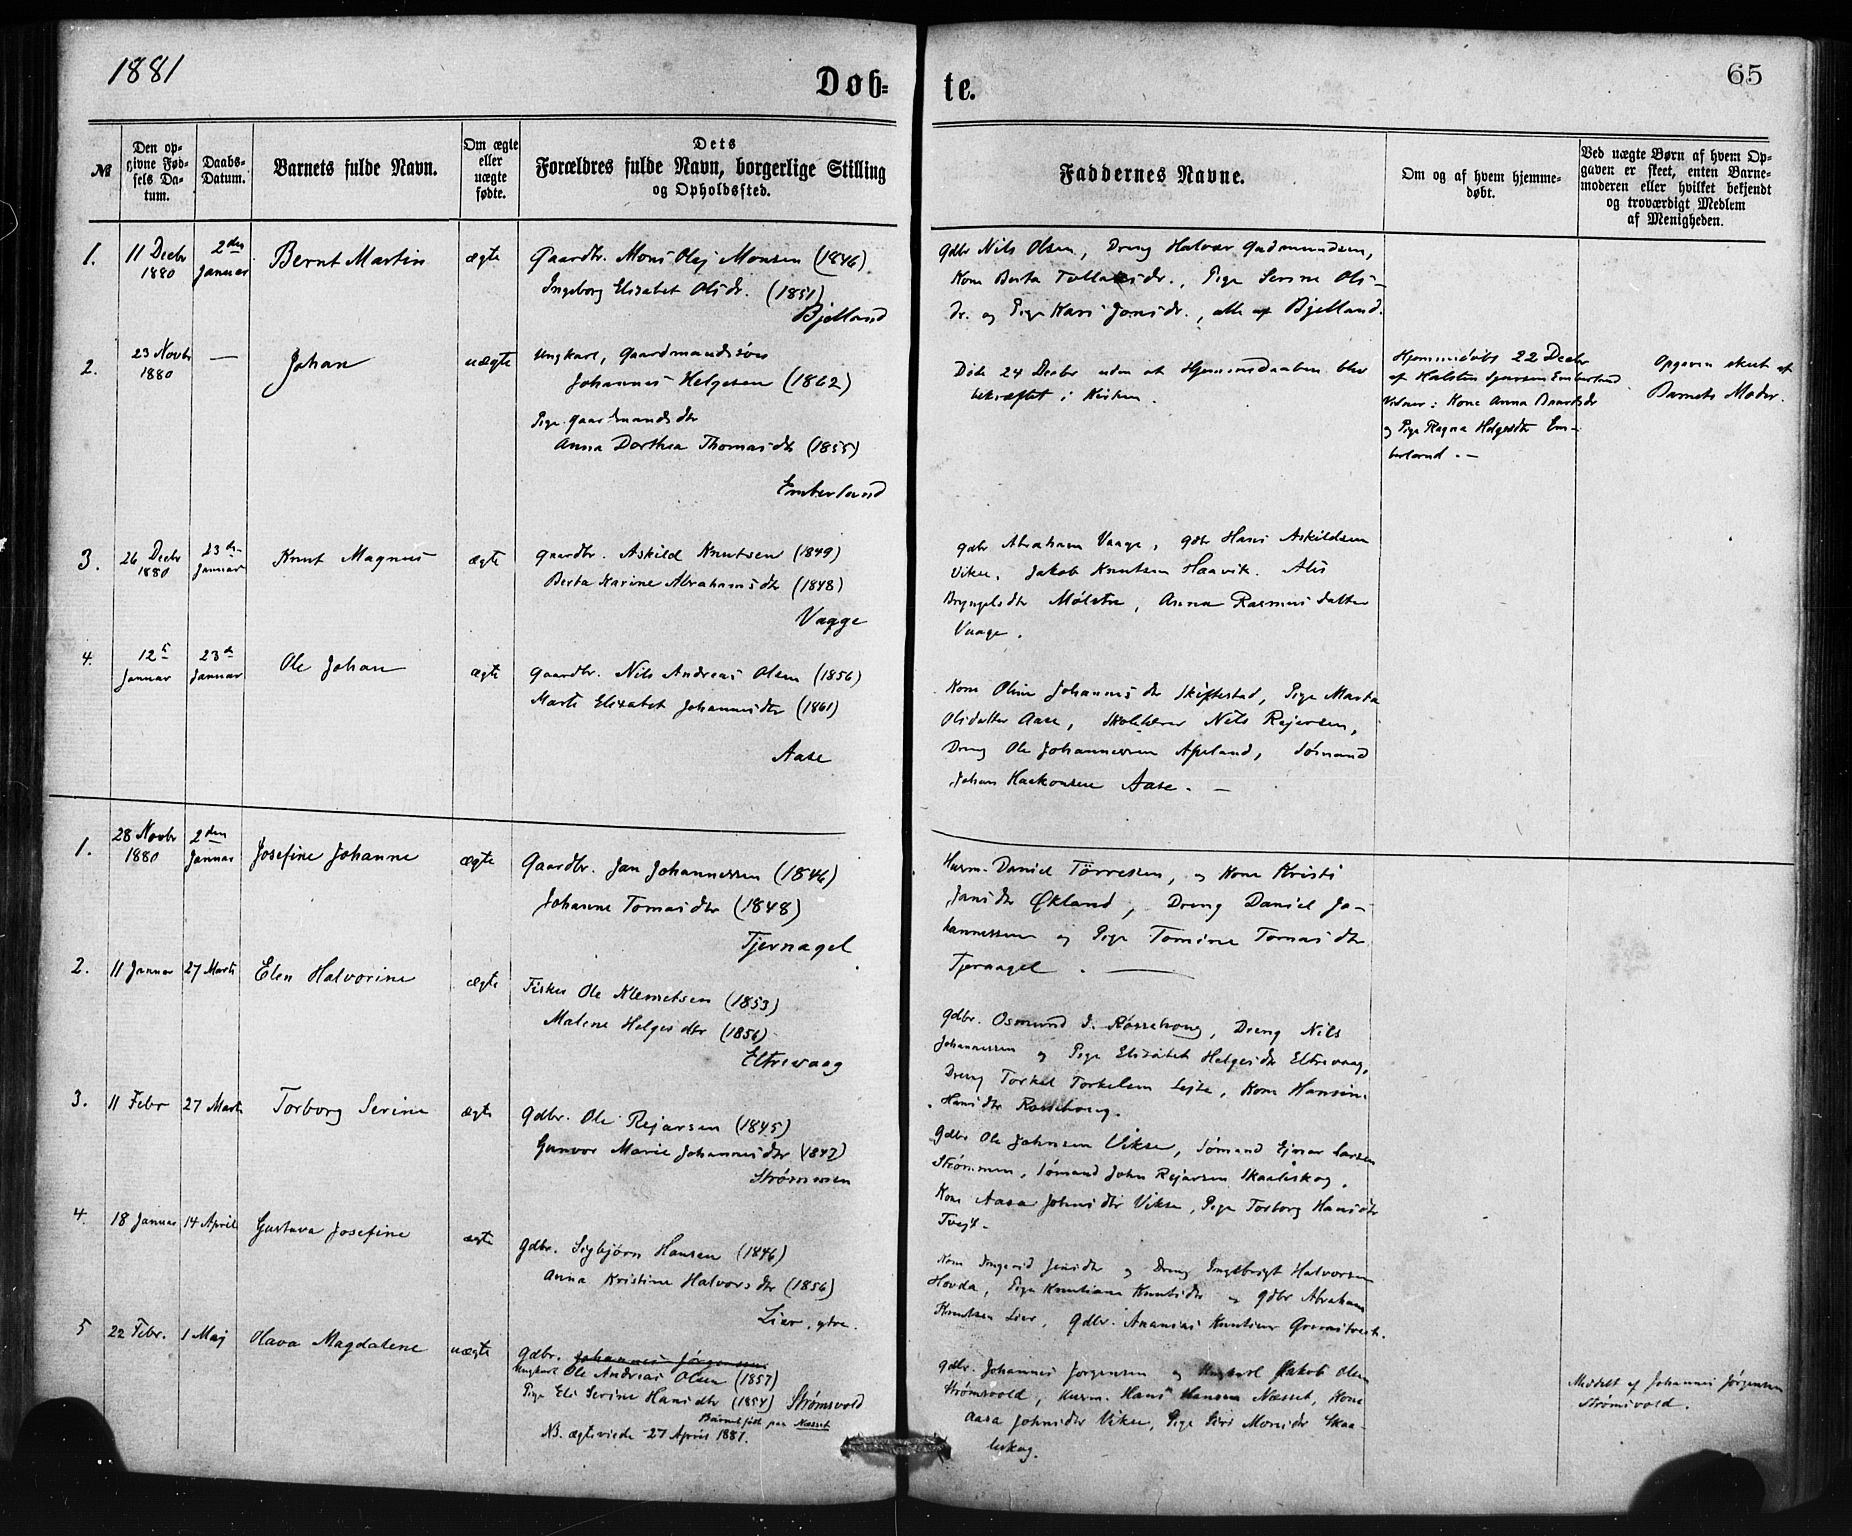 1881
Døb-
te.
65
№
Den op-
givne Fød-
sels Da-
tum.
Daabs-
Datum.
Barnets fulde Navn.
Om ægte
eller
uægte
fødte.
Dets
Forældres fulde Navn, borgerlige Stilling
og Opholdssted.
Faddernes Navne.
Om og af hvem hjemme-
døbt.
Ved uægte Børn af hvem Op-
gaven er skeet, enten Barne-
moderen eller hvilket bekjendt
og troværdigt Medlem
af Menigheden.
1.
11 Decbr
1880
2den
Januar
Bernt Martin
ægte
Gaardbr. Mons Olej Monsen (1846)
Ingeborg Elisabet Olsdr. (1851)
Bjelland
Gdbr Nils Olsen, Dreng Halvor Gudmundsen,
Kone Berta Tollaksdr., Pige Serine Ols-
dr. og Pige Kari Jonsdr., alle af Bjelland.
2.
23 Novbr
1880
—
Johan
uægte
Ungkarl, Gaardmandssøn
Johannes Helgesen (1862)
Pige Gaardmandsdtr
Anna Dorthea Thomasdtr (1855)
Emberland
Døde 24 Decbr uden at Hjemmedaaben blev
bekræftet i Kirken.
Hjemmedøbt 22 Decbr
af Halsten Emberland
Vidner: Kone Anna Baardsdr
og Pige Ragna Helgesdtr Em-
berland. —
Opgaven skeet af
Barnets Moder.
3.
26 Decbr
1880
23de
Januar
Knut Magnus
ægte
Gaardbr. Askild Knutsen (1849)
Berta Karine Abrahamsdtr (1848)
Vaage
Gdbr Abraham Vaage, Gdbr Hans Askildsen
Vikse, Jakob Knutsen Haavik. Alis
Bryngelsdtr Mølstre, Anna Rasmusdatter
Vaage.
4.
12te
Januar
23de
Januar
Ole Johan
ægte
Gaardbr. Nils Andreas Olsen (1856)
Marte Elisabet Johannesdtr (1861)
Aase
Kone Oline Johannesdtr Skiftestad, Pige Marta
Olsdatter Aase, Skolelærer Nils Rejersen,
Dreng Ole Johannessen Apeland, Sømand
Johan Haakonsen Aase. —
1.
28 Novbr
1880
2den
Januar
Josefine Johanne
ægte
Gaardbr. Jan Johannessen (1846)
Johanne Tomasdtr (1848)
Tjernagel
Husm. Daniel Tørresen, og Kone Kristi
Jansdtr Økland, Dreng Daniel Jo-
hannessen og Pige Tomine Tomasdtr
Tjernagel. —
2.
11 Januar
27 Marts
Elen Halvorine
ægte
Fisker Ole Klemetsen (1853)
Malene Helgesdtr (1856)
Eltrevaag
Gdbr. Osmund J. Røssehoug, Dreng Nils
Johannessen og Pige Elisabet Helgesdtr Eltrevaag,
Dreng Torkel Torkelsen Lejte, Kone Hansine
Hansdtr Røssehoug.
3.
11 Febr
27 Marts
Torborg Serine
ægte
Gdbr. Ole Rejarsen (1845)
Gunvor Marie Johannesdtr (1847)
Strømmen
Gdbr Ole Johnsen Vikse, Sømand Ejnar Larsen
Strømmen, Sømand John Rejarsen Skaaleskog,
Kone Aasa Johnsdtr Vikse, Pige Torborg Hansdtr
Tvejt.
4.
18 Januar
14 April
Gustava Josefine
ægte
Gdbr. Sigbjørn Hansen (1846)
Anna Kristine Halvorsdtr (1856)
Lier, ytre.
Kone Ingerid Jensdtr og Dreng Ingebrigt Halvorsen
Hovda, Pige Knutiane Knutsdtr og Gdbr Abraham
Knutsen Lier, Gdbr. Ananias Knutsen
5
22 Febr.
1 Maj
Olava Magdalene
uægte
Gdbr. Johannes Jørgensen
Ungkarl Ole Andreas Olsen (1857)
Pige Eli Serine Hansdtr (1854) Strømsvold
Barnet født paa Næsset
NB. ægteviede 27 April 1881.
Gdbr. Johannes Jørgensen og Ungkarl Jakob Olsen
Strømsvold, Husm. Hans Hansen Næsset, Kone
Aasa Johnsdtr Vikse, Pige Siri Monsdtr Skaa-
leskog.
Meddelt af Johannes Jørgensen
Strømsvold.